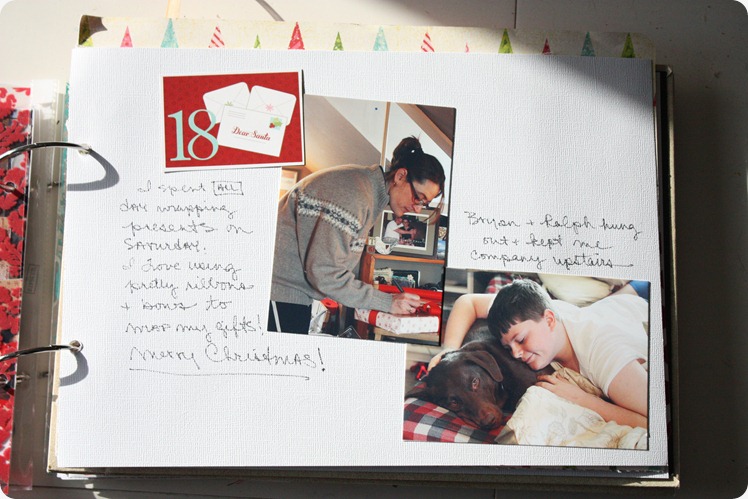 18
Dear Santa
I spent ALL
day wrapping
presents on
SATURDAY.
I love using
pretty ribbons
+ bows to
wrap my gifts!
Merry Christmas!
Bryan + Ralph hung
out + kept me
company upstairs